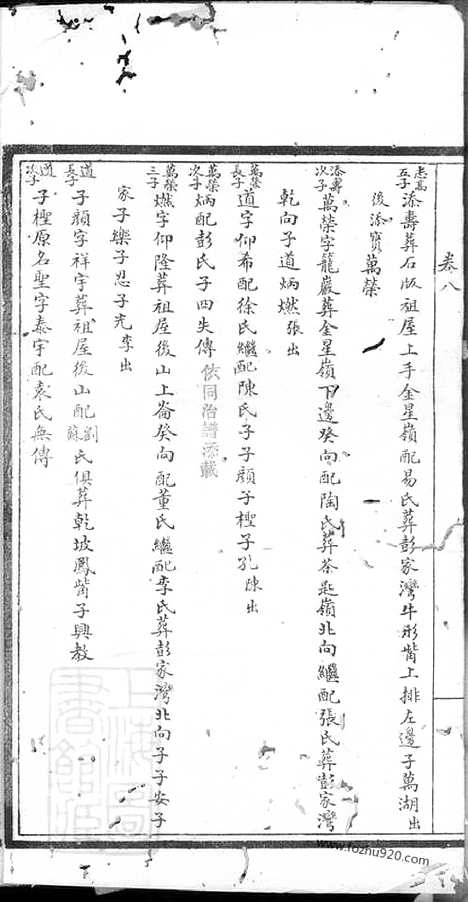 卷八
志高五子添壽葬石版祖屋上手金星嶺配易氏葬彭家灣牛形嘴上排左邊子萬湖出
後添寶萬榮
添壽次子萬榮字籠巖葬金星嶺下邊癸向配陶氏葬茶匙嶺北向繼配張氏葬彭家灣
乾向子道炳燃張出
萬榮長子道字仰希配徐氏繼配陳氏子子顔子檉子孔陳出
萬榮次子炳配彭氏子四失傳依同治譜添載
萬榮三子燃字仰隆葬祖屋後山上崙癸向配董氏繼配李氏葬彭家灣北向子子安子
家子樂子忍子先李出
道長子子顔字祥宇葬祖屋後山配劉蘇氏俱葬乾坡鳳嘴子興教
道次子子檉原名聖字泰宇配袁氏無傳
上海圖書館藏
www.fozhu920.com